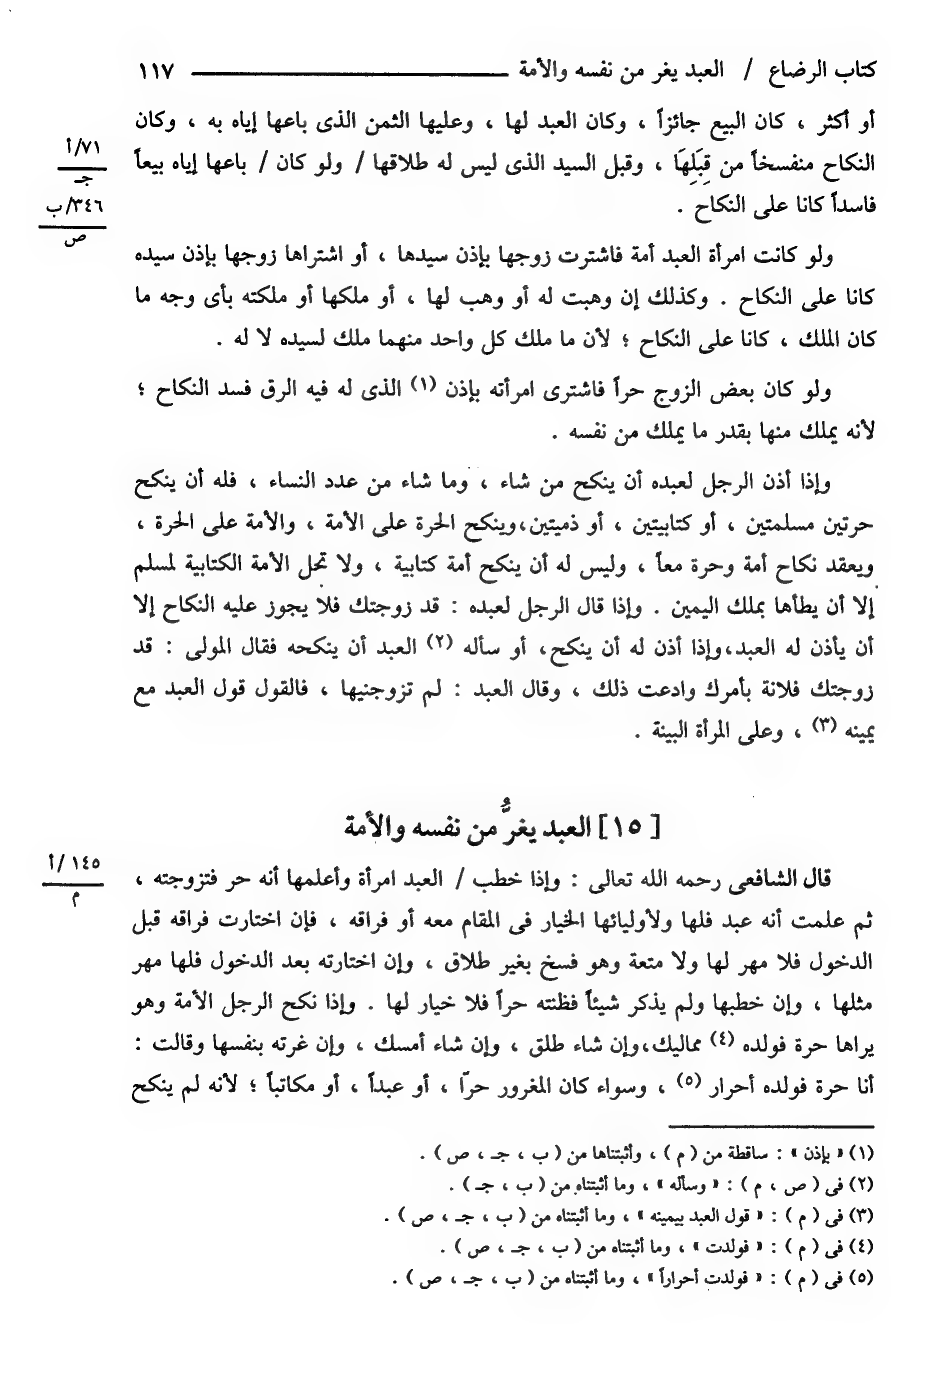 كتاب الرضاع / العبد يغر من نفسه والأمة ١١٧
أو أكثر ، كان البيع جائزاً ، وكان العبد لها ، وعليها الثمن الذى باعها إياه به ، وكان
النكاح منفسخاً من قِبَلِهَا ، وقبل السيد الذى ليس له طلاقها / ولو كان / باعها إياه بيعاً
فاسداً كانا على النكاح .
٧١/أ
جـ
٣٤٦/ب
ص
ولو كانت امرأة العبد أمة فاشترت زوجها بإذن سيدها ، أو اشتراها زوجها بإذن سيده
كانا على النكاح . وكذلك إن وهبت له أو وهب لها ، أو ملكها أو ملكته بأى وجه ما
كان الملك ، كانا على النكاح ؛ لأن ما ملك كل واحد منهما ملك لسيده لا له .
ولو كان بعض الزوج حراً فاشترى امرأته بإذن (١) الذى له فيه الرق فسد النكاح ؛
لأنه يملك منها بقدر ما يملك من نفسه .
وإذا أذن الرجل لعبده أن ينكح من شاء ، وما شاء من عدد النساء ، فله أن ينكح
حرتين مسلمتين ، أو كتابيتين ، أو ذميتين،وينكح الحرة على الأمة ، والأمة على الحرة ،
ويعقد نكاح أمة وحرة معاً ، وليس له أن ينكح أمة كتابية ، ولا تحل الأمة الكتابية لمسلم
إلا أن يطأها بملك اليمين . وإذا قال الرجل لعبده : قد زوجتك فلا يجوز عليه النكاح إلا
أن يأذن له العبد،وإذا أذن له أن ينكح، أو سأله (٢) العبد أن ينكحه فقال المولى : قد
زوجتك فلانة بأمرك وادعت ذلك ، وقال العبد : لم تزوجنيها ، فالقول قول العبد مع
يمينه (٣) ، وعلى المرأة البينة .
[ ١٥ ] العبد يغرُّ من نفسه والأمة
قال الشافعى رحمه الله تعالى : وإذا خطب / العبد امرأة وأعلمها أنه حر فتزوجته ،
١٤٥ /أ
م
ثم علمت أنه عبد فلها ولأوليائها الخيار فى المقام معه أو فراقه ، فإن اختارت فراقه قبل
الدخول فلا مهر لها ولا متعة وهو فسخ بغير طلاق ، وإن اختارته بعد الدخول فلها مهر
مثلها ، وإن خطبها ولم يذكر شيئاً فظنته حراً فلا خيار لها . وإذا نكح الرجل الأمة وهو
يراها حرة فولده (٤) مماليك،وإن شاء طلق ، وإن شاء أمسك ، وإن غرته بنفسها وقالت :
أنا حرة فولده أحرار (٥) ، وسواء كان المغرور حرّا ، أو عبداً ، أو مكاتباً ؛ لأنه لم ينكح
(١) « بإذن » : ساقطة من ( م ) ، وأثبتناها من ( ب ، جـ ، ص ) .
(٢) فى ( ص ، م ) : « وسأله » ، وما أثبتناه من ( ب ، جـ ) .
(٣) فى ( م ) : « قول العبد بيمينه » ، وما أثبتناه من ( ب ، جـ ، ص ) .
(٤) فى ( م ) : « فولدت » ، وما أثبتناه من ( ب ، جـ ، ص ) .
(٥) فى ( م ) : « فولدت أحراراً » ، وما أثبتناه من ( ب ، جـ ، ص ) .